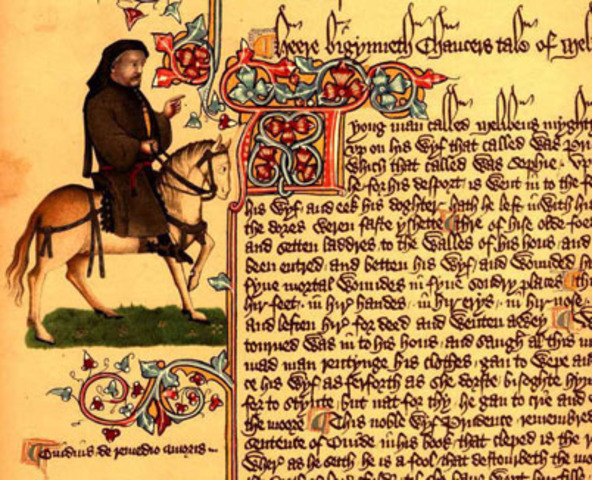 Heere bigynneth Chaucers tale of Mel
A yong man called Melibeus myght
up on his wyf that called was
which that called was Sophie . Up
he for his desport is went in to the f
his wyf and eek his doghter hath he left inwith hi
the dores weren faste yshette Thre of hise olde foe
and setten laddres to the walles of his hous and
been entred and betten his wyf and wounded h
fyue mortal woundes in fyue sondry places th
hir feet in hir handes in hir erys in hir nose
and leften hir for deed and wenten awey W
torned was in to his hous and saugh al this m
mad man rentynge his clothes gan to wepe an
ce his wyf as ferforth as she dorste bisoghte hym
for to stynte but nat for thy he gan to crie and w
the moore This noble wyf Prudence remembred
sentence of Ouide in his book that cleped is the r
wher as he seith he is a fool that destourbeth the mo
Ouidius de remedio amoris